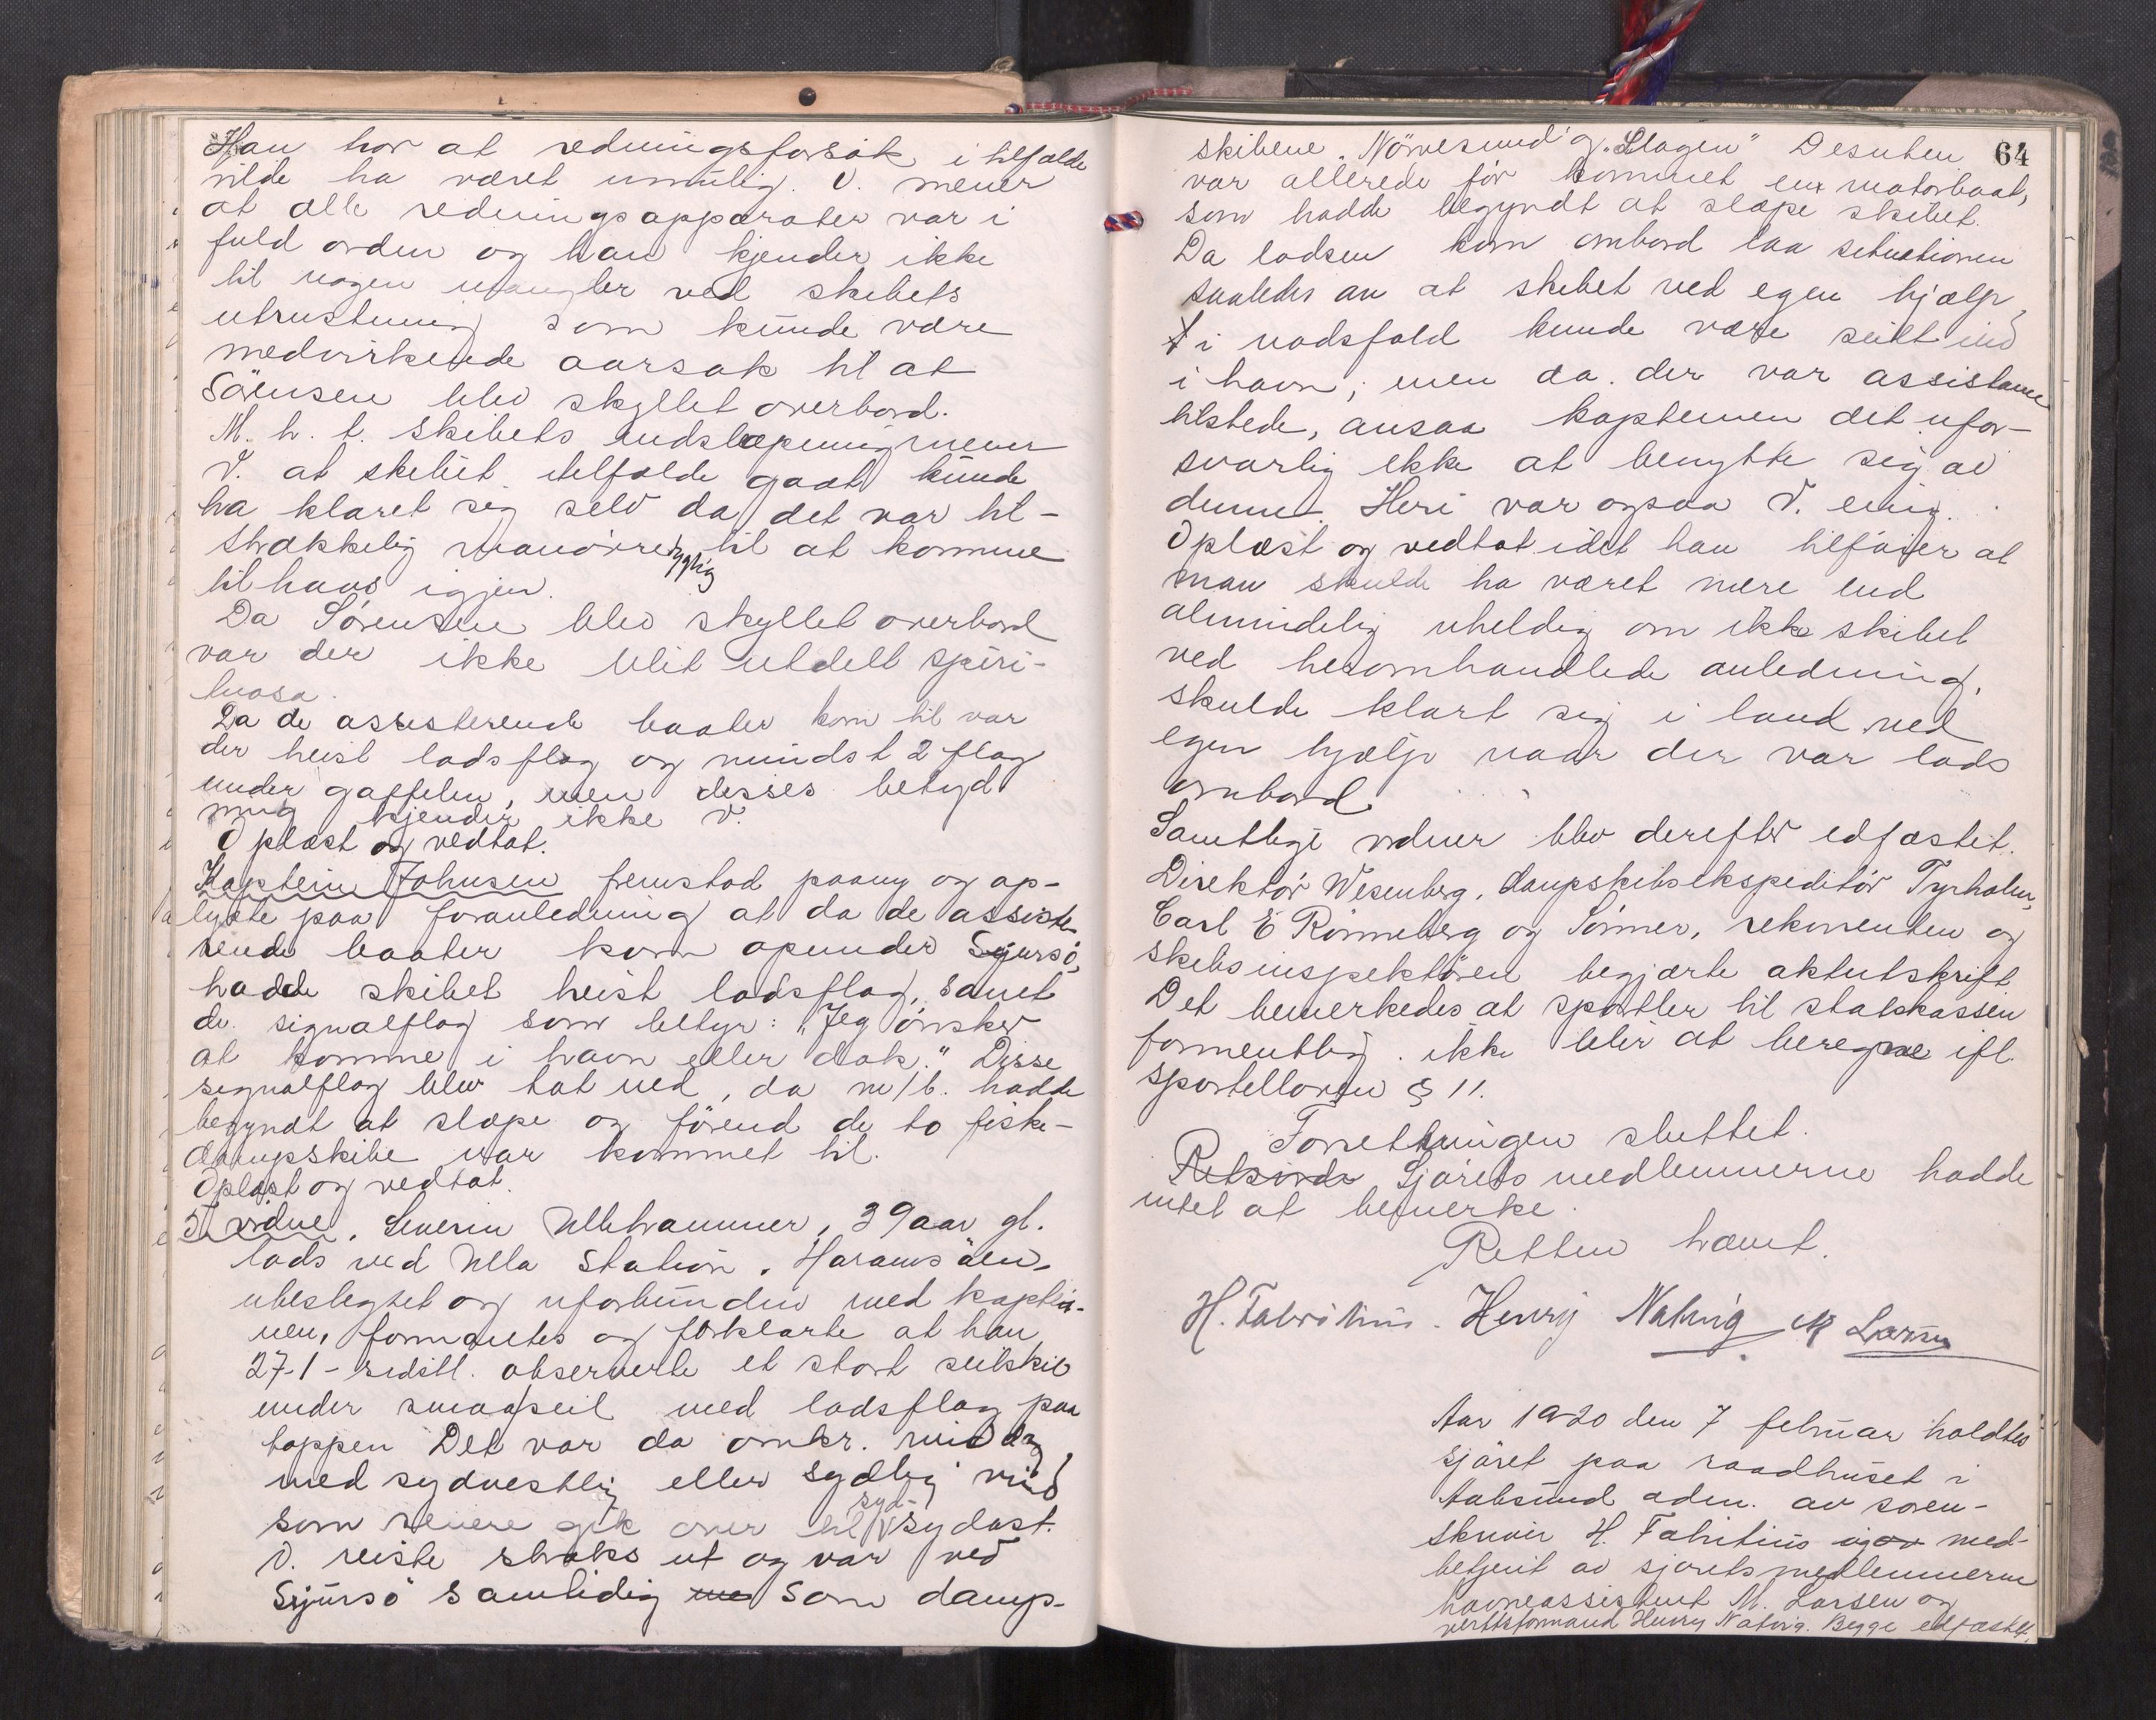 Han tror at redningsforsøk i tilfælde
vilde ha været umulig. V. mener
at alle redningsapparater var i
fuld orden og han kjender ikke
til nogen mangler ved skibets
utrustning som kunde være
medvirkende aarsak til at
Sörensen blev skyllet overbord.
M. h. t. skibets indslæpning mener
V. at skibet itilfælde godt kunde
ha klaret sig selv da det var til-
strækkelig manövredygtig til at komme
til havs igjen.
Da Sørensen blev skyllet overbord
var der ikke blit utdelt spiri-
tuosa.
Da de assisterende baater kom til var
der heist losflag og mindst 2 flag
under gaffelen, men disses betyd
ning kjender ikke V.
Oplæst og vedtat.
Kaptein Johnsen fremstod paany og op-
lyste paa foranledning at da de assiste-
rende baater kom opunder Sjursö,
hadde skibet heist lodsflag, samt
de signalflag som betyr: "Jeg önsker
at komme i havn eller dok." Disse
signalflag blev tat ned, da m/b. hadde
begyndt at slæpe og förend de to fiske-
dampskibe var kommet til.
Oplæst og vedtat.
5. vidne. Severin Ullahammer, 39 aar gl.
lods ved Ulla Station. Haramsöen,
ubeslegtet og uforbunden med kaptei-
nen, formantes og forklarte at han
27-1- sidstl. observerte et stort seilskib
under smaaseil med lodsflag paa
toppen Det var da omkr. middag
med sydvestlig eller sydlig vind
som senere gik over til syd-sydost.
V. reiste straks ut og var ved
Sjursö samtidig som damp-
64
skibene "Nörvesund" og "Slagen" Desuten
var allerede för kommet en motorbaat,
som hadde begyndt at slæpe skibet.
Da lodsen kom ombord laa situationen
saaledes an at skibet ved egen hjælp,
i nødsfald kunde være seilt ind
i havn; men da der var assistance
tilstede, ansaa kapteinen det ufor-
svarlig ikke at benytte sig av
denne. Heri var ogsaa V. enig.
Oplæst og vedtat idet han tilföier at
man skulde ha været mere end
almindelig uheldig om ikke skibet
ved heromhandlede anledning,
skulde klart sig i land ved
egen hjælp naar der var lods
ombord.
Samtlige vidner blev derefter edfæstet.
Direktör Wesenberg, dampskibsekspeditör Tyrholm,
Carl E Rönneberg og Sönner, rekvirenten og
skibsinspektören begjærte aktutskrift
Det bemerkedes at sportler til statskassen
formentlig ikke blir at beregne ifl.
sportelloven § 11.
Forretningen sluttet.
Retsvidn Sjørets medlemmerne hadde
intet at bemerke.
Retten hævet.
H. Fabritius. Henry Natvig M Larsen
Aar 1920 den 7 februar holdtes
sjöret paa raadhuset i
Aalesund adm. av soren-
skriver H. Fabritius med-
betjent av sjøretsmedlemmerne
havneassistent M. Larsen og
verftsformand Henry Natvig. Begge edfæstet.